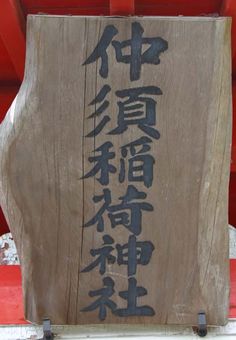 仲須稲荷神社